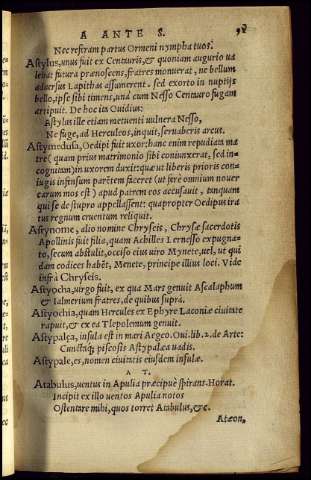 A ANTE S.
Nec referam partus Ormeni nympha tuos.
Astylus, unus fuit ex Centauris, & quoniam augurio ua
lebat futura prænoscens, fratres monuerat, ne bellum
aduersus Lapithas assumerent. sed exorto in nuptijs
bello, ipse sibi timens, unà cum Nesso Centauro fugam
arripuit. De hoc ita Ouidius:
Astylus ille etiam metuenti uulnera Nesso,
Ne fuge, ad Herculeos, inquit, seruaberis arcus.
Astymedusa, Oedipi fuit uxor: hanc enim repudiata ma
tre (quam prius matrimonio sibi coniunxerat, sed in-
cognitam) in uxorem duxit: quæ ut liberis prioris con-
iugis infensum parētem faceret (ut ferè omnium nouer
carum mos est) apud patrem eos accusauit, tanquam
qui se de stupro appellassent: quapropter Oedipus ira
tus regnum cruentum reliquit.
Astynome, alio nomine Chryseis, Chrysæ sacerdotis
Apollinis fuit filia, quam Achilles Lernesso expugna-
to, secum abstulit, occiso eius uiro Mynete, uel, ut qui
dam codices habēt, Menete, principe illius loci. Vide
infrà Chryseis.
Astyocha, uirgo fuit, ex qua Mars genuit Ascalaphum
& Ialmerium fratres, de quibus suprà.
Astyochia, quam Hercules ex Ephyre Laconiæ ciuitate
rapuit, & ex ea Tlepolemum genuit.
Astypalæa, insula est in mari Aegeo. Oui. lib. 2. de Arte:
Cunctaq; piscosis Astypalæa uadis.
Astypale, es, nomen ciuitatis eiusdem insulæ.
A T.
Atabulus, uentus in Apulia præcipuè spirans. Horat.
Incipit ex illo uentos Apulia notos
Ostentare mihi, quos torret Atabulus, &c.
Atæon,